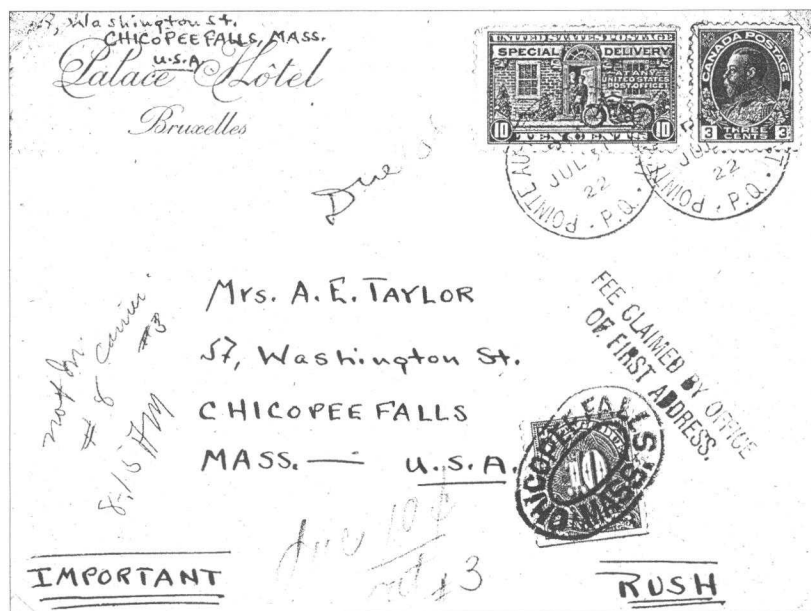 57, Washington St.
CHICOPEE FALLS, MASS.
U.S.A
Palace Hôtel
Bruxelles
UNITED STATES POSTAGE
SPECIAL DELIVERY
AT ANY
UNITED STATES
POST OFFICE
10 TEN CENTS 10
CANADA POSTAGE
3 THREE CENTS 3
POINTE AU
JUL 31
22
P.Q.
POINTE
JUL
22
P.Q.
Due
Mrs. A. E. TAYLOR
57, Washington St.
CHICOPEE FALLS
MASS. — U.S.A.
not in.
# 8 carrier.
#3
8:15 AM
FEE CLAIMED BY OFFICE
OF FIRST ADDRESS.
CHICOPEE FALLS
MASS.
10
due 10¢
#3
IMPORTANT
RUSH